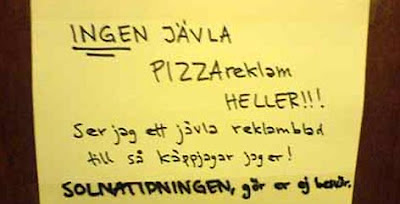 INGEN JÄVLA
PIZZAreklam
HELLER!!!
Ser jag ett jävla reklamblad
till så käppjagar jag er!
SOLNATIDNINGEN, gör er ej besvär.